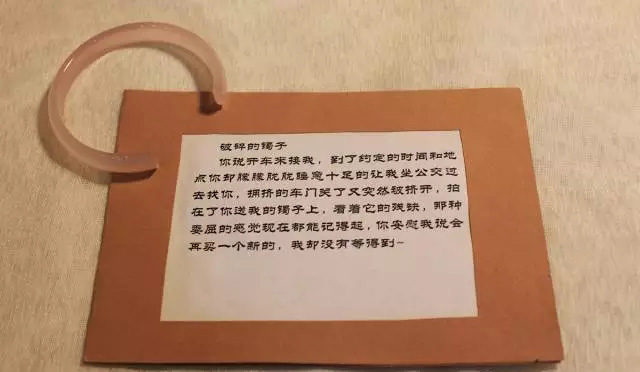 破碎的镯子
你说开车来接我，到了约定的时间和地
点你却朦朦胧胧睡意十足的让我坐公交过
去找你，拥挤的车门关了又突然被挤开，拍
在了你送我的镯子上，看着它的残缺，那种
委屈的感觉现在都能记得起，你安慰我说会
再买一个新的，我却没有等得到~